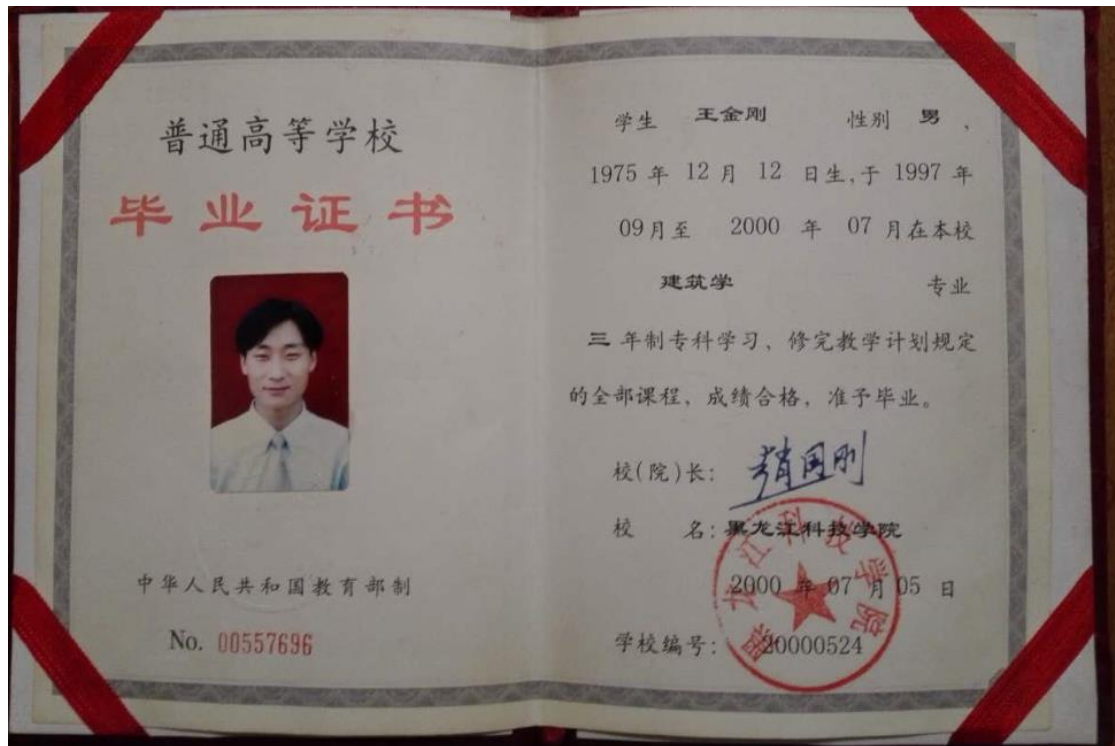 普通高等学校
毕业证书
中华人民共和国教育部制
No. 00557696
学生 王金刚 性别 男 ,
1975 年 12 月 12 日生,于 1997 年
09月至 2000 年 07 月在本校
建筑学 专业
三 年制专科学习、修完教学计划规定
的全部课程, 成绩合格, 准予毕业。
校(院)长: 赵国刚
校 名: 黑龙江科技学院
2000 年 07 月 05 日
学校编号: 20000524
黑龙江科技学院